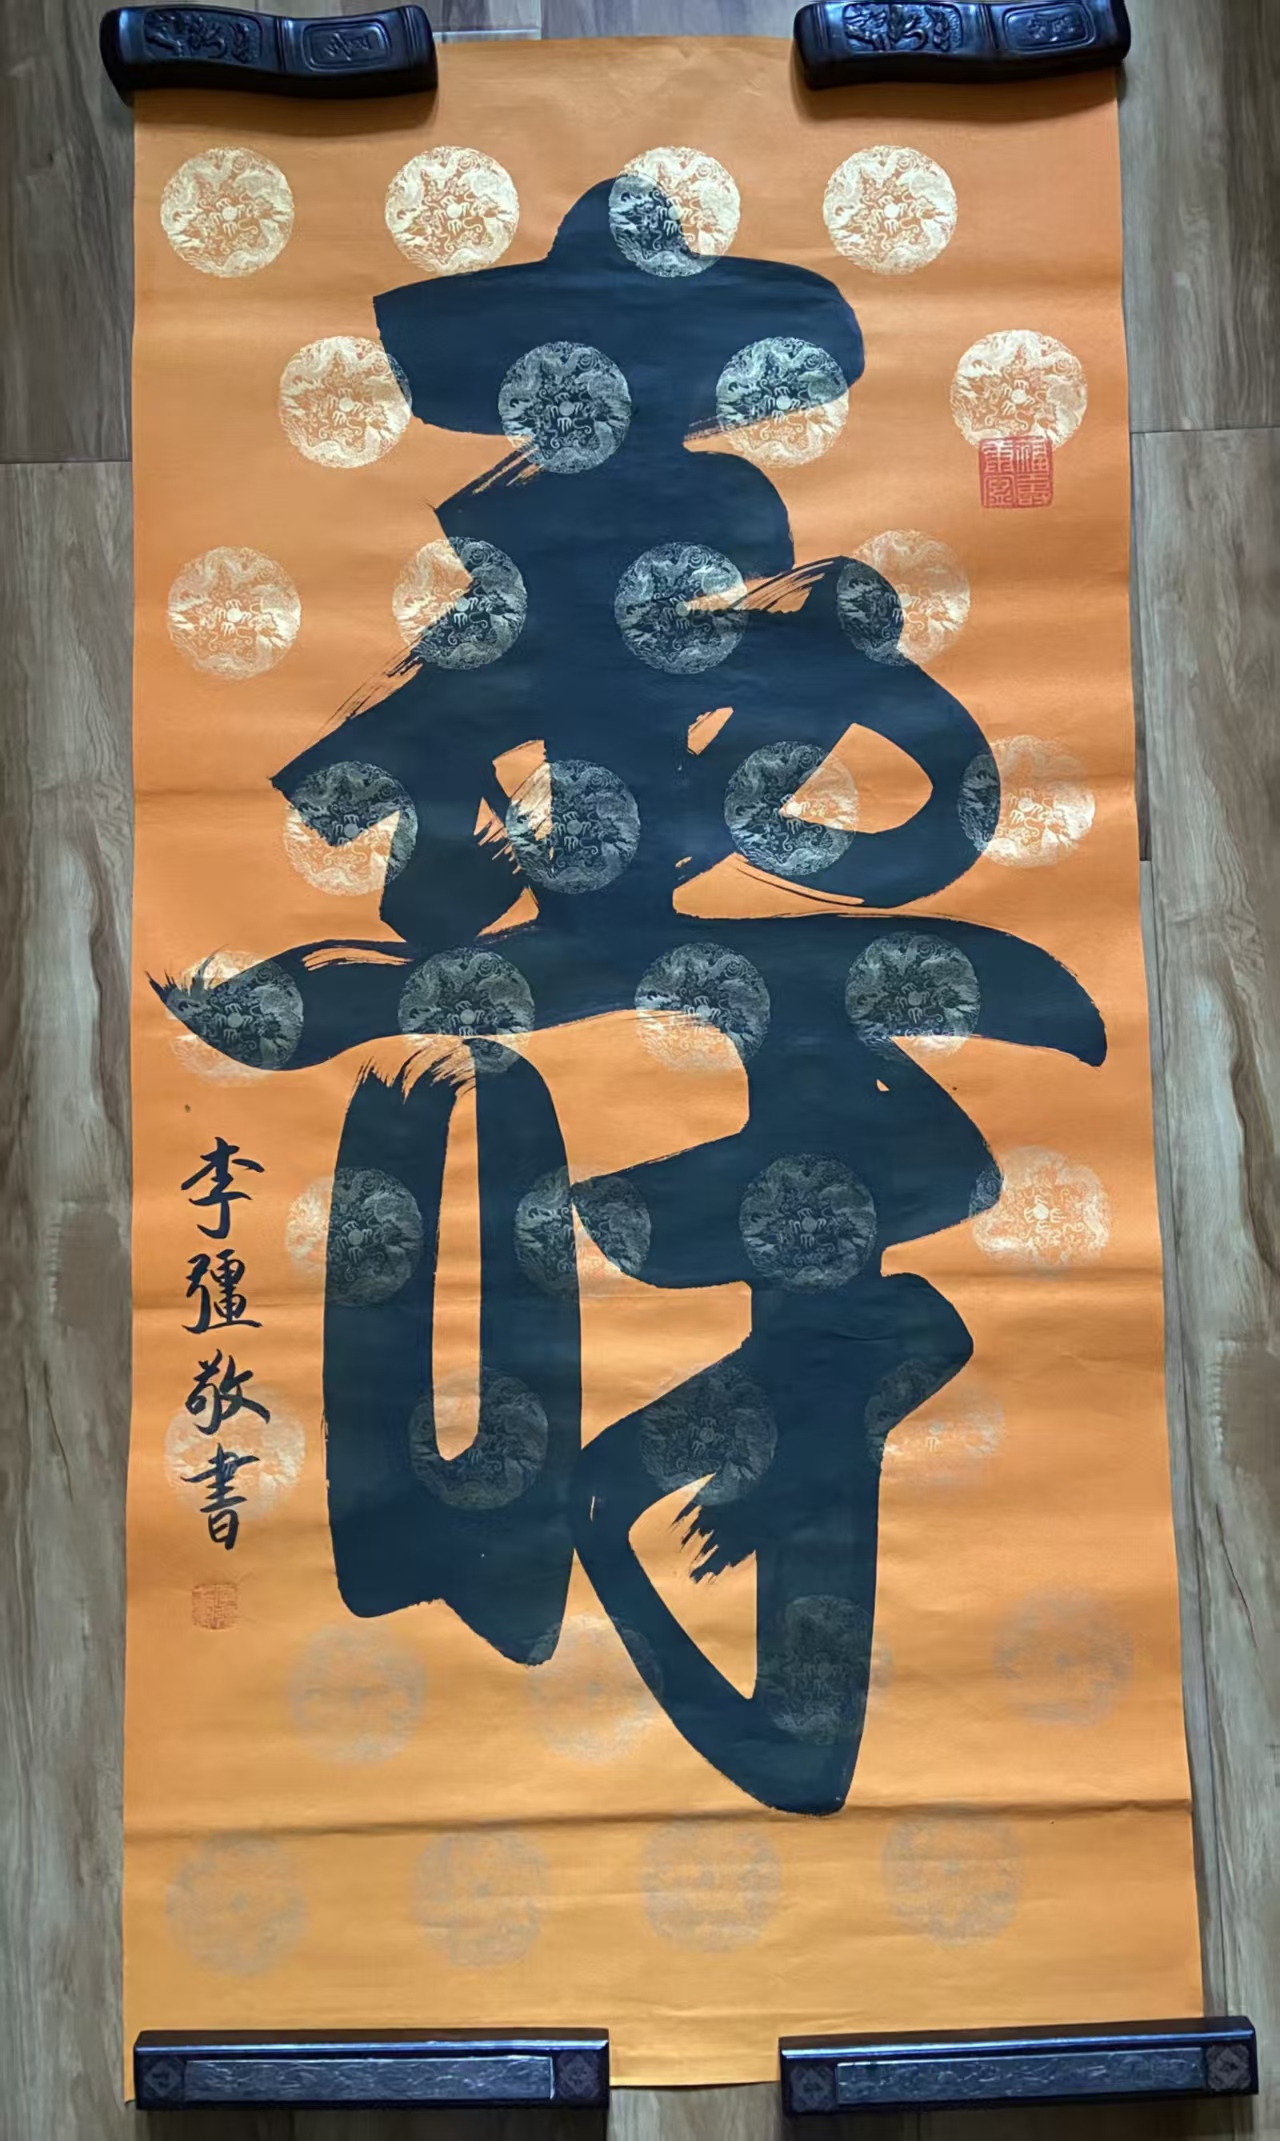 壽
李彊敬書
福壽康寧